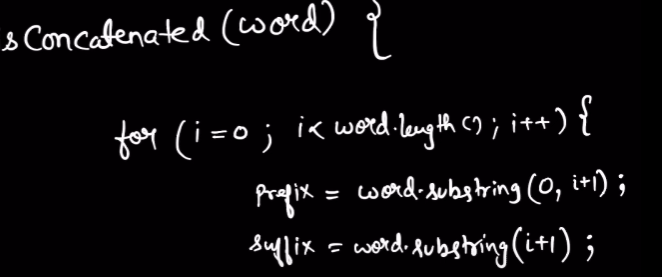 sConcatenated (word) {
for (i = 0 ; i < word.length () ; i++) {
prefix = word.substring (0, i+1) ;
suffix = word.substring (i+1) ;